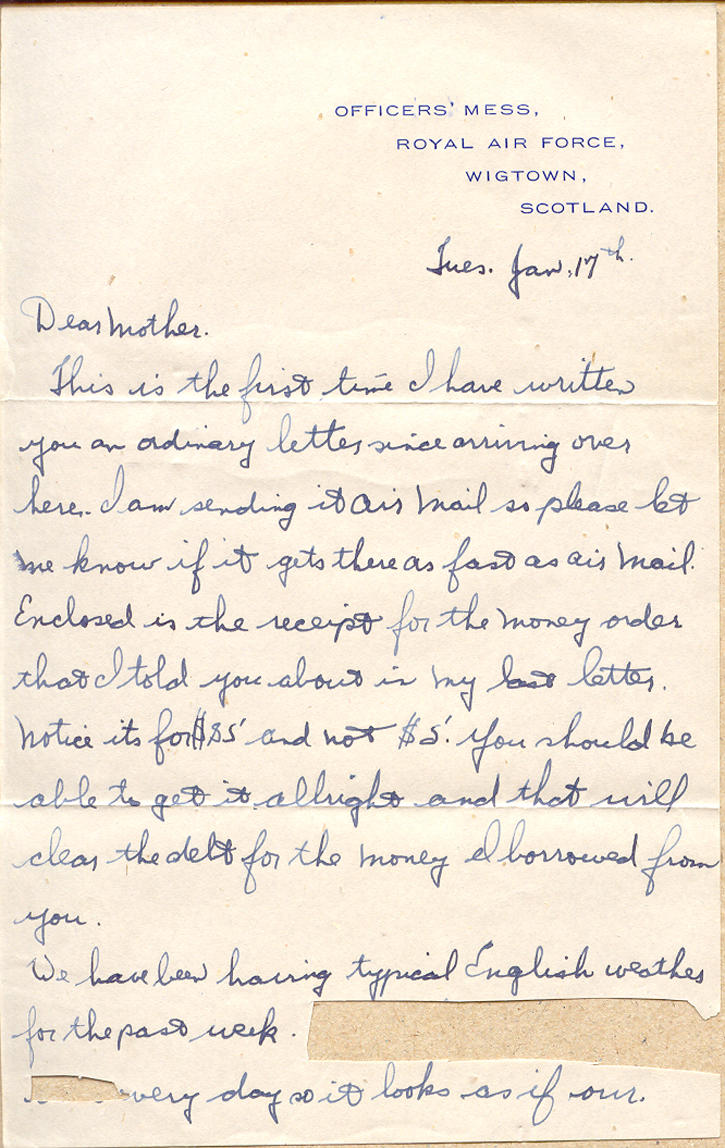 OFFICERS' MESS,
ROYAL AIR FORCE,
WIGTOWN,
SCOTLAND.
Tues. Jan. 17th.
Dear Mother.
This is the first time I have written
you an ordinary letter since arriving over
here. I am sending it air mail so please let
me know if it gets there as fast as air mail.
Enclosed is the receipt for the money order
that I told you about in my last letter.
Notice its for and not $5. You should be
able to get it allright and that will
clear the debt for the money I borrowed from
you.
We have been having typical English weather
for the past week.
every day so it looks as if our.